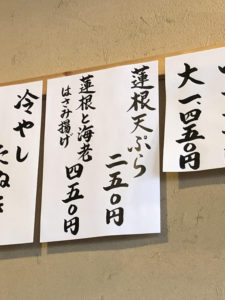 大 一、四五〇円
蓮根天ぷら
二五〇円
蓮根と海老
はさみ揚げ
四五〇円
冷やし